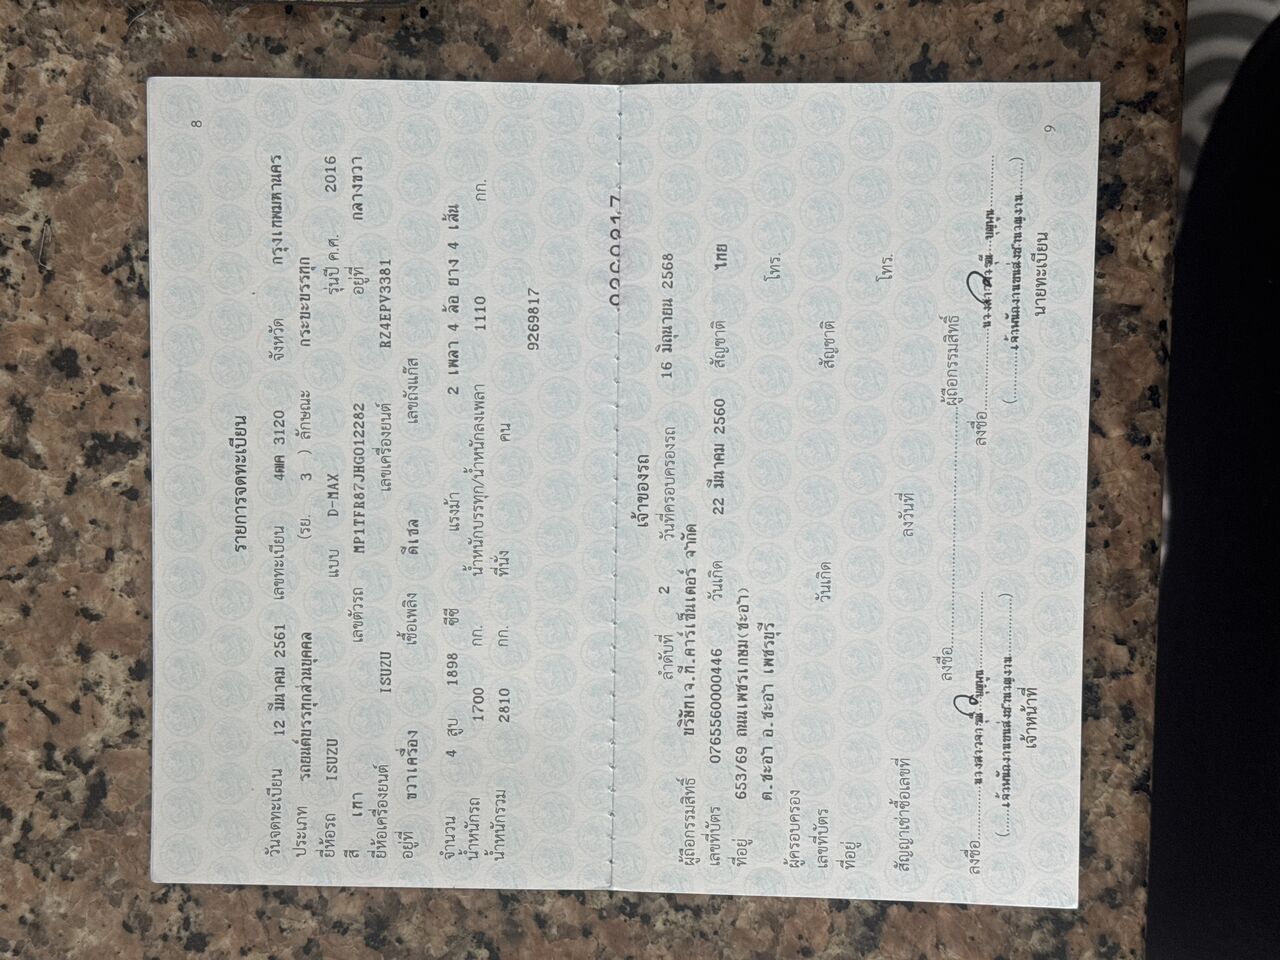 8
รายการจดทะเบียน
วันจดทะเบียน 12 มีนาคม 2561 เลขทะเบียน 4ฒค 3120 จังหวัด กรุงเทพมหานคร
ประเภท รถยนต์บรรทุกส่วนบุคคล (รย. 3 ) ลักษณะ กระบะบรรทุก
ยี่ห้อรถ ISUZU แบบ D-MAX รุ่นปี ค.ศ. 2016
สี เทา เลขตัวรถ MP1TFR87JHG012282 อยู่ที่ กลางขวา
ยี่ห้อเครื่องยนต์ ISUZU เลขเครื่องยนต์ RZ4EPV3381
อยู่ที่ ขวาเครื่อง เชื้อเพลิง ดีเซล เลขถังแก๊ส
จำนวน 4 สูบ 1898 ซีซี แรงม้า 2 เพลา 4 ล้อ ยาง 4 เส้น
น้ำหนักรถ 1700 กก. น้ำหนักบรรทุก/น้ำหนักลงเพลา 1110 กก.
น้ำหนักรวม 2810 กก. ที่นั่ง คน
9269817
เจ้าของรถ
ลำดับที่ 2 วันที่ครอบครองรถ 16 มิถุนายน 2568
ผู้ถือกรรมสิทธิ์ บริษัทเจ.ที.คาร์เซ็นเตอร์ จำกัด
เลขที่บัตร 0765560000446 วันเกิด 22 มีนาคม 2560 สัญชาติ ไทย
ที่อยู่ 653/69 ถนนเพชรเกษม(ชะอำ) โทร.
ต.ชะอำ อ.ชะอำ เพชรบุรี
ผู้ครอบครอง
เลขที่บัตร วันเกิด สัญชาติ
ที่อยู่ โทร.
สัญญาเช่าซื้อเลขที่ ลงวันที่
ลงชื่อ ผู้ถือกรรมสิทธิ์
ลงชื่อ ลงชื่อ
เจ้าหน้าที่ นายทะเบียน
9